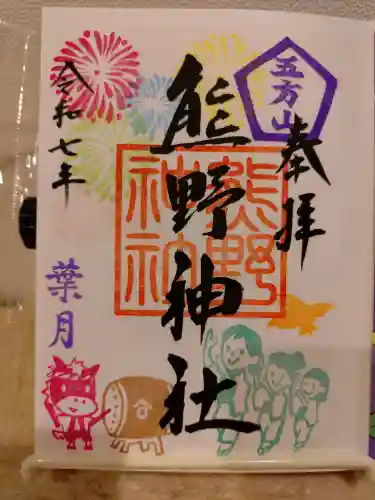 五方山
奉拝
熊野神社
熊野
神社
令和七年
葉月